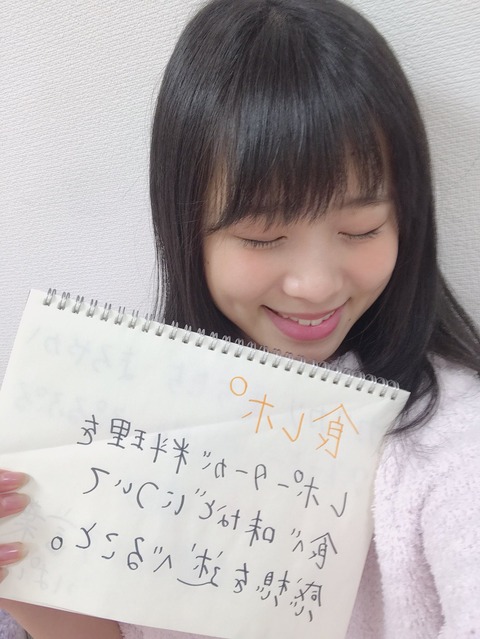 食レポ
レポーターが料理を
食べ味などについて
感想を述べること。